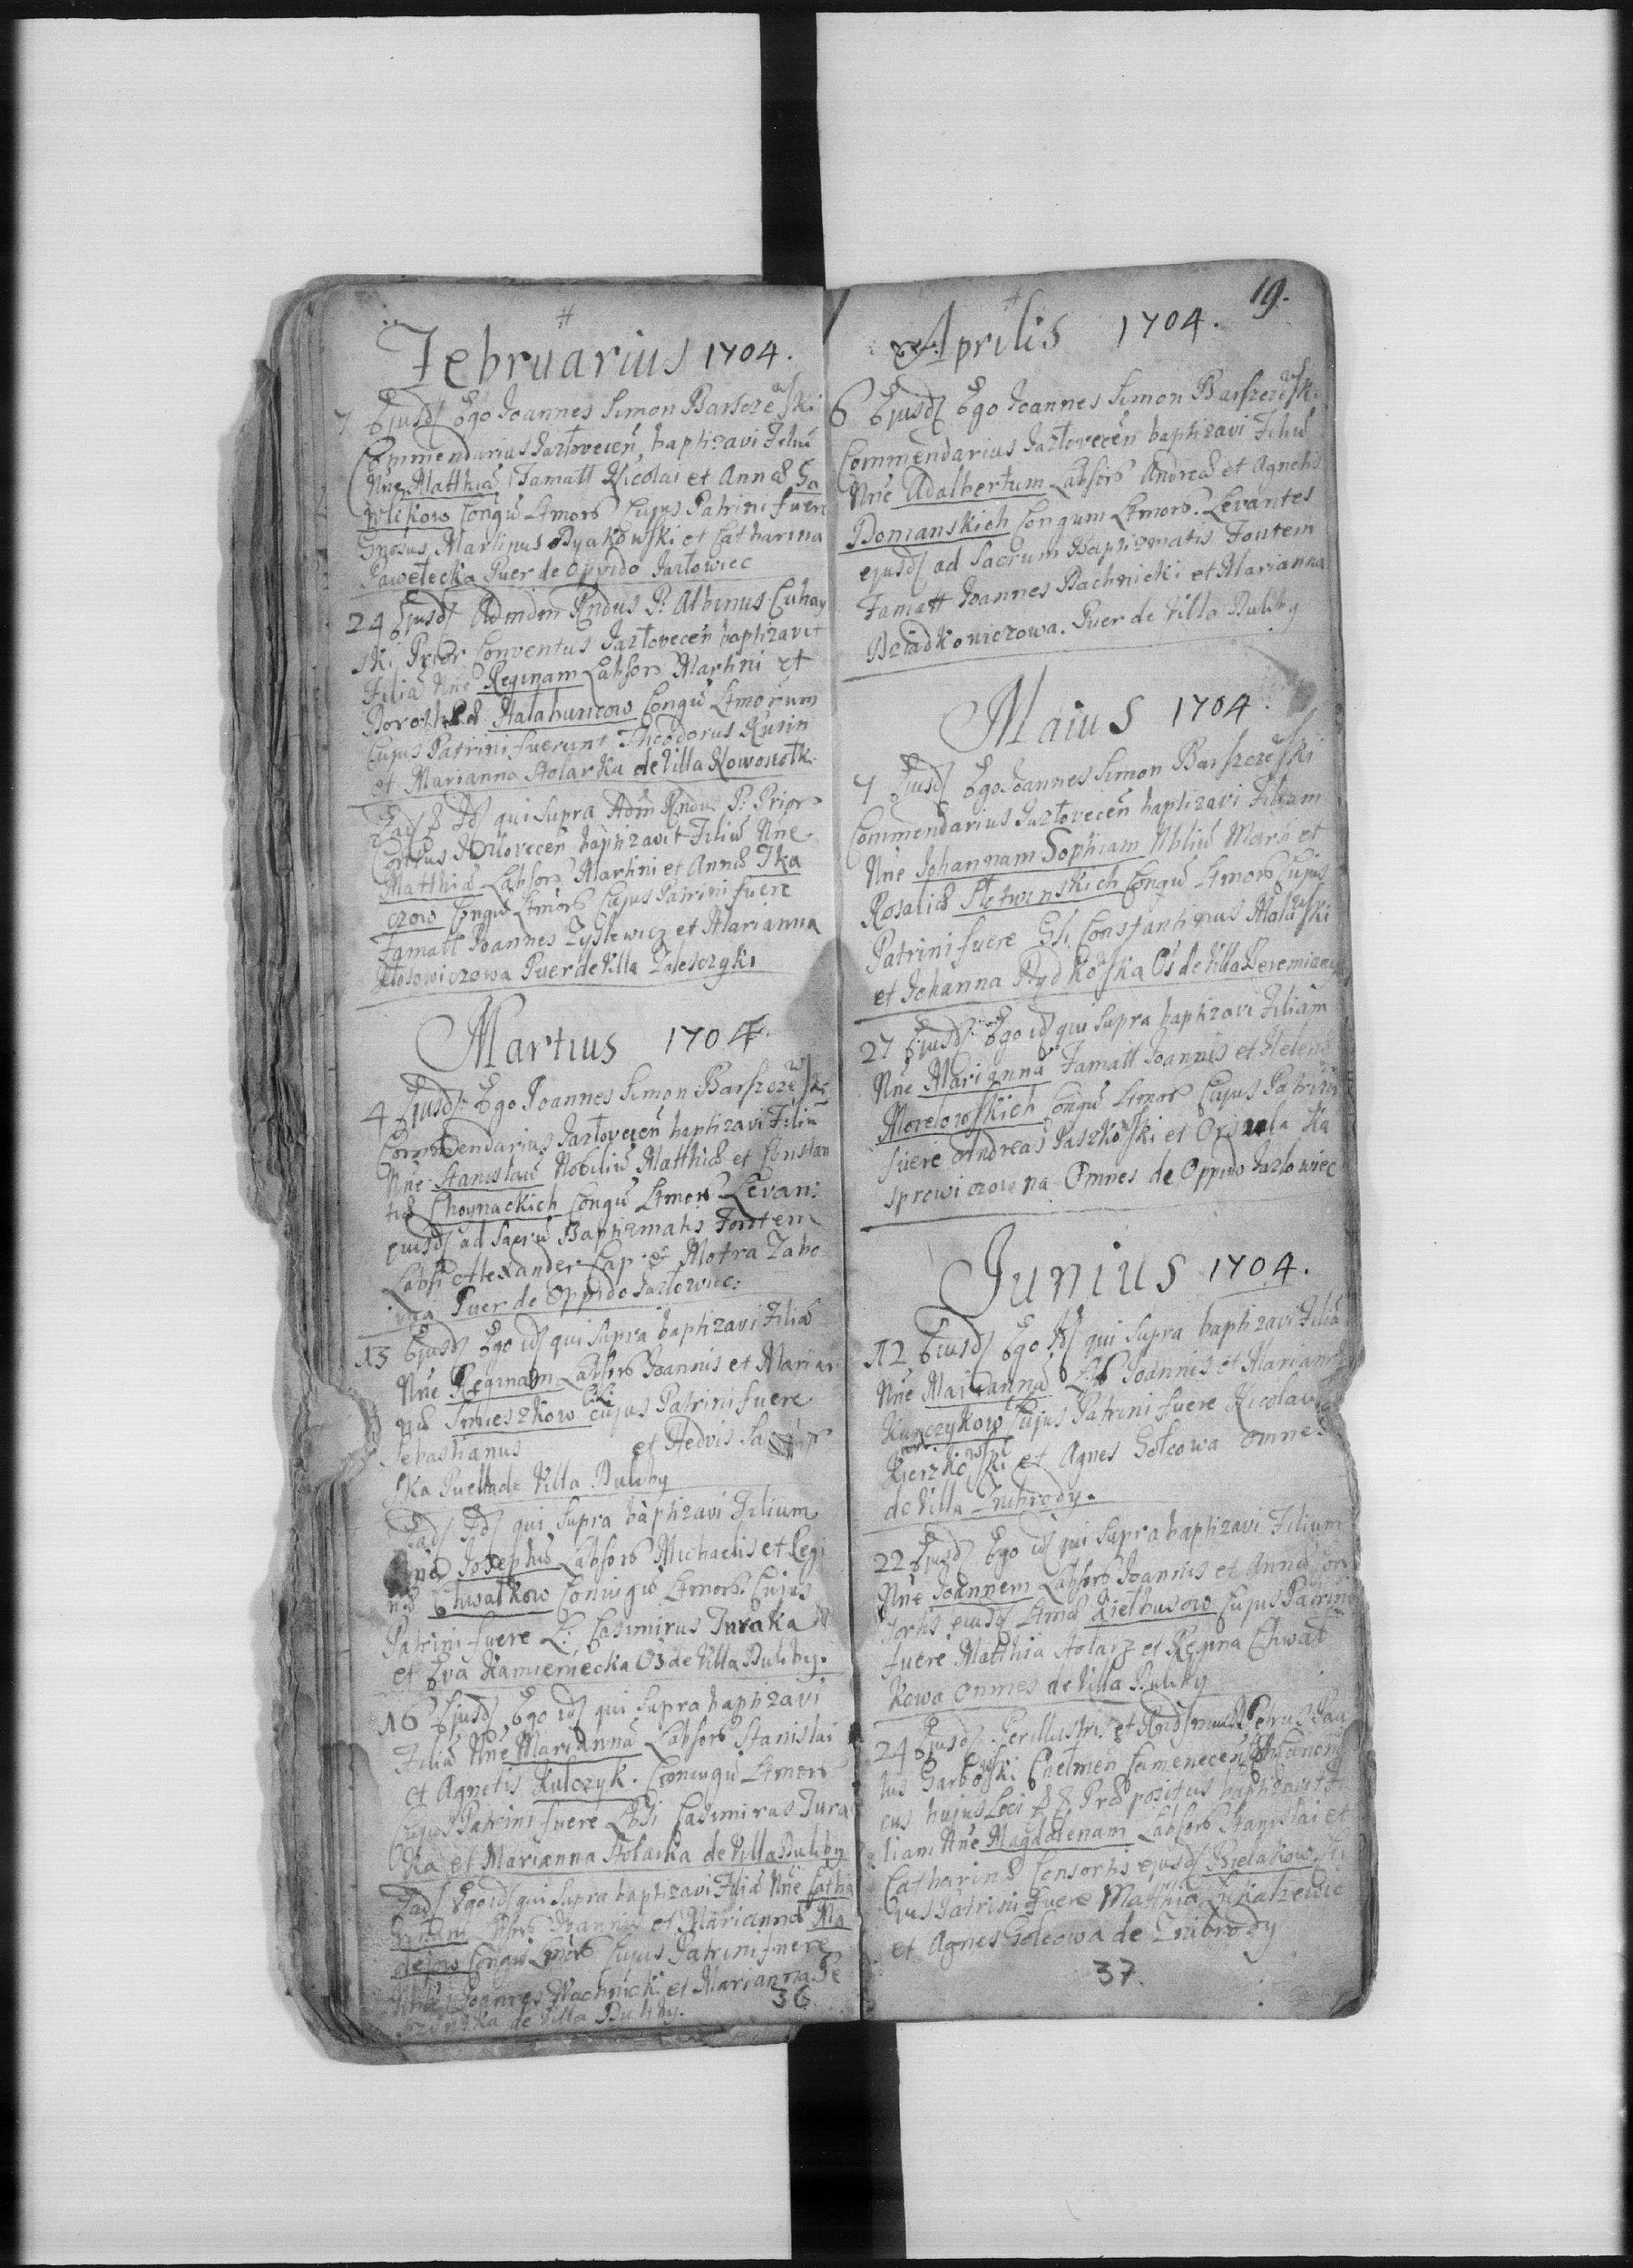 Februarius 1704.
7 Ejusd Ego Joannes Simon Barszczewski
Commendarius Jazłovecen baptizavi Filiu
Nne Matthia Famatt Nicolai et Annæ Ga
wlikow Congu Ltmors Cujus Patrini fuere
Gnosus Martinus Dyakowski et Catharina
Pawełecka Puer de Oppido Jazłowiec
24 Ejusd Admdm Rndus P. Albinus Cuhay
ski Prior Conventus Jazłovecen baptizavit
Filia Nne Reginam Labsors Martini et
Dorotheæ Hałahuncow Congu Ltmorum
Cujus Patrini fuerunt Theodorus Rusin
et Marianna Stolarka de Villa Nowosiołk
Ead Id qui supra Adm Rndus P. Prior
Contus Jazłovecen baptizavit Filiu Nne
Matthia Labsors Martini et Annæ Tka
czow Congu Ltmors Cujus Patrini fuere
Famatt Joannes Zyslewicz et Marianna
Puer de Villa Zalesczyki
Martius 1704.
4 Ejusd Ego Joannes Simon Barszczewski
Commendarius Jazłovecen baptizavi Filiu
Nne Stanisław Nobiliu Matthiæ et Constan
tiæ Choynackich Congu Ltmors Levan:
ejusd ad Sacru Baptizmatis Fontem
Labsi Alexander Cap et Motra Zabo
Puer de Oppido Jazłowiec:
13 Ejusd Ego id qui supra baptizavi Filia
Nne Reginam Labsors Joannis et Marian
næ Smieszkow C:L: cujus Patrini fuere
Sebastianus et Hedvis
ska Puella de Villa Duliby
Ead Id qui supra baptizavi Filium
Nne Josephu Labsors Michaelis et Regi
næ Chwałkow Coniugu Ltmors. Cujus
Patrini fuere L: Casimirus Juraka
et Eva Kamieniecka Os de Villa Duliby.
16 Ejusd Ego id qui supra baptizavi
Filia Nne Marianna Labsors Stanislai
et Agnetis Kulczyk. Coniugu Ltmors
Cujus Patrini fuere Lbsi Casimirus Jura
ka et Marianna Stolarka de Villa Duliby
Ead Ego id qui supra baptizavi Filia Nne Catha
rinam Lbsors Joannis et Mariannæ Ma
dejow Congu Ltmors Cujus Patrini fuere
Joannes Wachnicki et Marianna Se
de Villa Duliby.
36
19.
Aprilis 1704.
6 Ejusd Ego Joannes Simon Barszczewski
Commendarius Jazłovecen baptizavi Filiu
Nne Adalbertum Labsors Andreæ et Agnetis
Domanskich Congum Ltmors. Levantes
ejusd ad Sacrum Baptizmatis Fontem
Famatt Joannes Bachnicki et Marianna
Dziadkowiczowa. Puer de Villa Duliby
Maius 1704.
7 Ejusd Ego Joannes Simon Barszczewski
Commendarius Jazłovecen baptizavi Filiam
Nne Johannam Sophiam Nbliu Marci et
Rosaliæ Słotwinskich Congu Ltmors Cujus
Patrini fuere Gsi Constantinus Malawski
et Johanna Rydkowska Os de Villa Beremiany
27 Ejusd Ego id qui supra baptizavi Filiam
Nne Marianna Famatt Joannis et Helenæ
Morelowskich Congu Ltmors Cujus Patrini
fuere Andreas Paszkowski et Orszula Ka
sprowiczowna Omnes de Oppido Jazłowiec
Junius 1704.
12 Ejusd Ego Id qui supra baptizavi Filia
Nne Marianna Lb Joannis et Mariannæ
Kunczykow Cujus Patrini fuere Nicolaus
Kierzkowski et Agnes Gołcowa omnes
de Villa Znibrody.
22 Ejusd Ego id qui supra baptizavi Filium
Nne Joannem Labsors Joannis et Annæ Con
sortis ejusd Ltmæ Kiełbusow Cujus Patrini
fuere Matthia Stolarz et Regina Chwał
kowa omnes de Villa Duliby
24 Ejusd Perillustris et Rndsmus Petrus Pau
lus Garbowski Chełmen Camenecen Canoni
cus hujus Loci Præpositus baptizavit Fi
liam Nne Magdalenam Labsors Stanislai et
Catharinæ Consortis ejusd Bielakow Cu
jus Patrini fuere Matthia Lukasiewic
et Agnes Gołcowa de Znibrody
37.